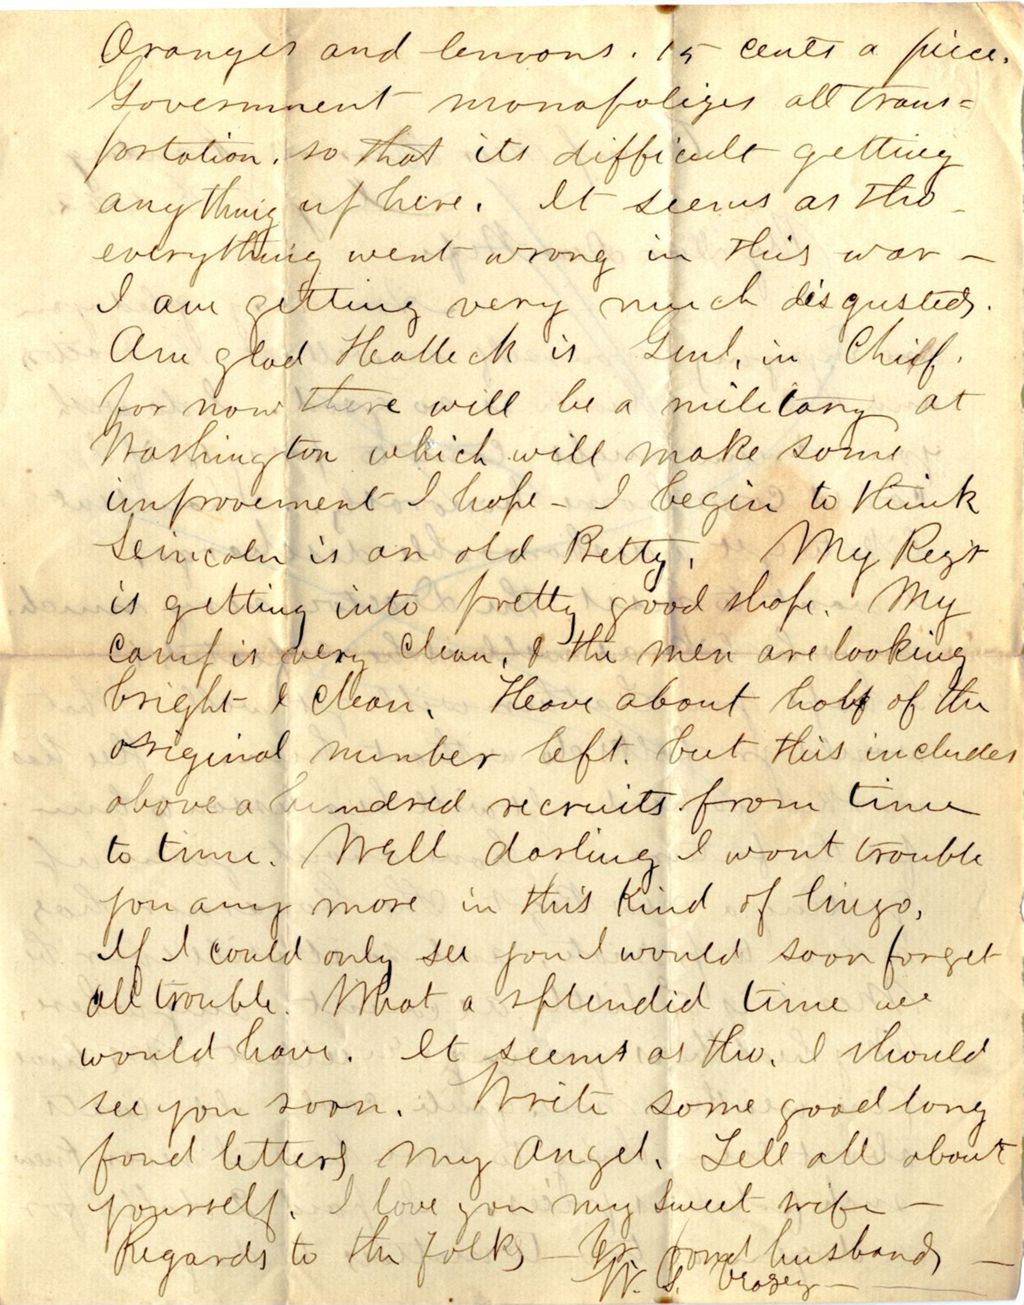 Oranges and lemons. 15 cents a piece.
Government monapolizes all trans=
portation. so that its difficult getting
anything up here. It seems as tho
everything went wrong in this war –
I am getting very much disgusted.
Am glad Halleck is Genl. in Chief.
for now there will be a military at
Washington which will make some
improvement I hope – I begin to think
Lincoln is an old Betty. My Regt
is getting into pretty good shape. My
camp is very clean, & the men are looking
bright & clean. Have about half of the
original number left. but this includes
above a hundred recruits from time
to time. Well darling I wont trouble
you any more in this kind of lingo.
If I could only see you I would soon forget
all trouble. What a splendid time we
would have. It seems as tho. I should
see you soon. Write some good long
fond letters my angel. Tell all about
yourself. I love you my sweet wife –
Regards to the folks – Yr fond husband –
W. S. Veazey –